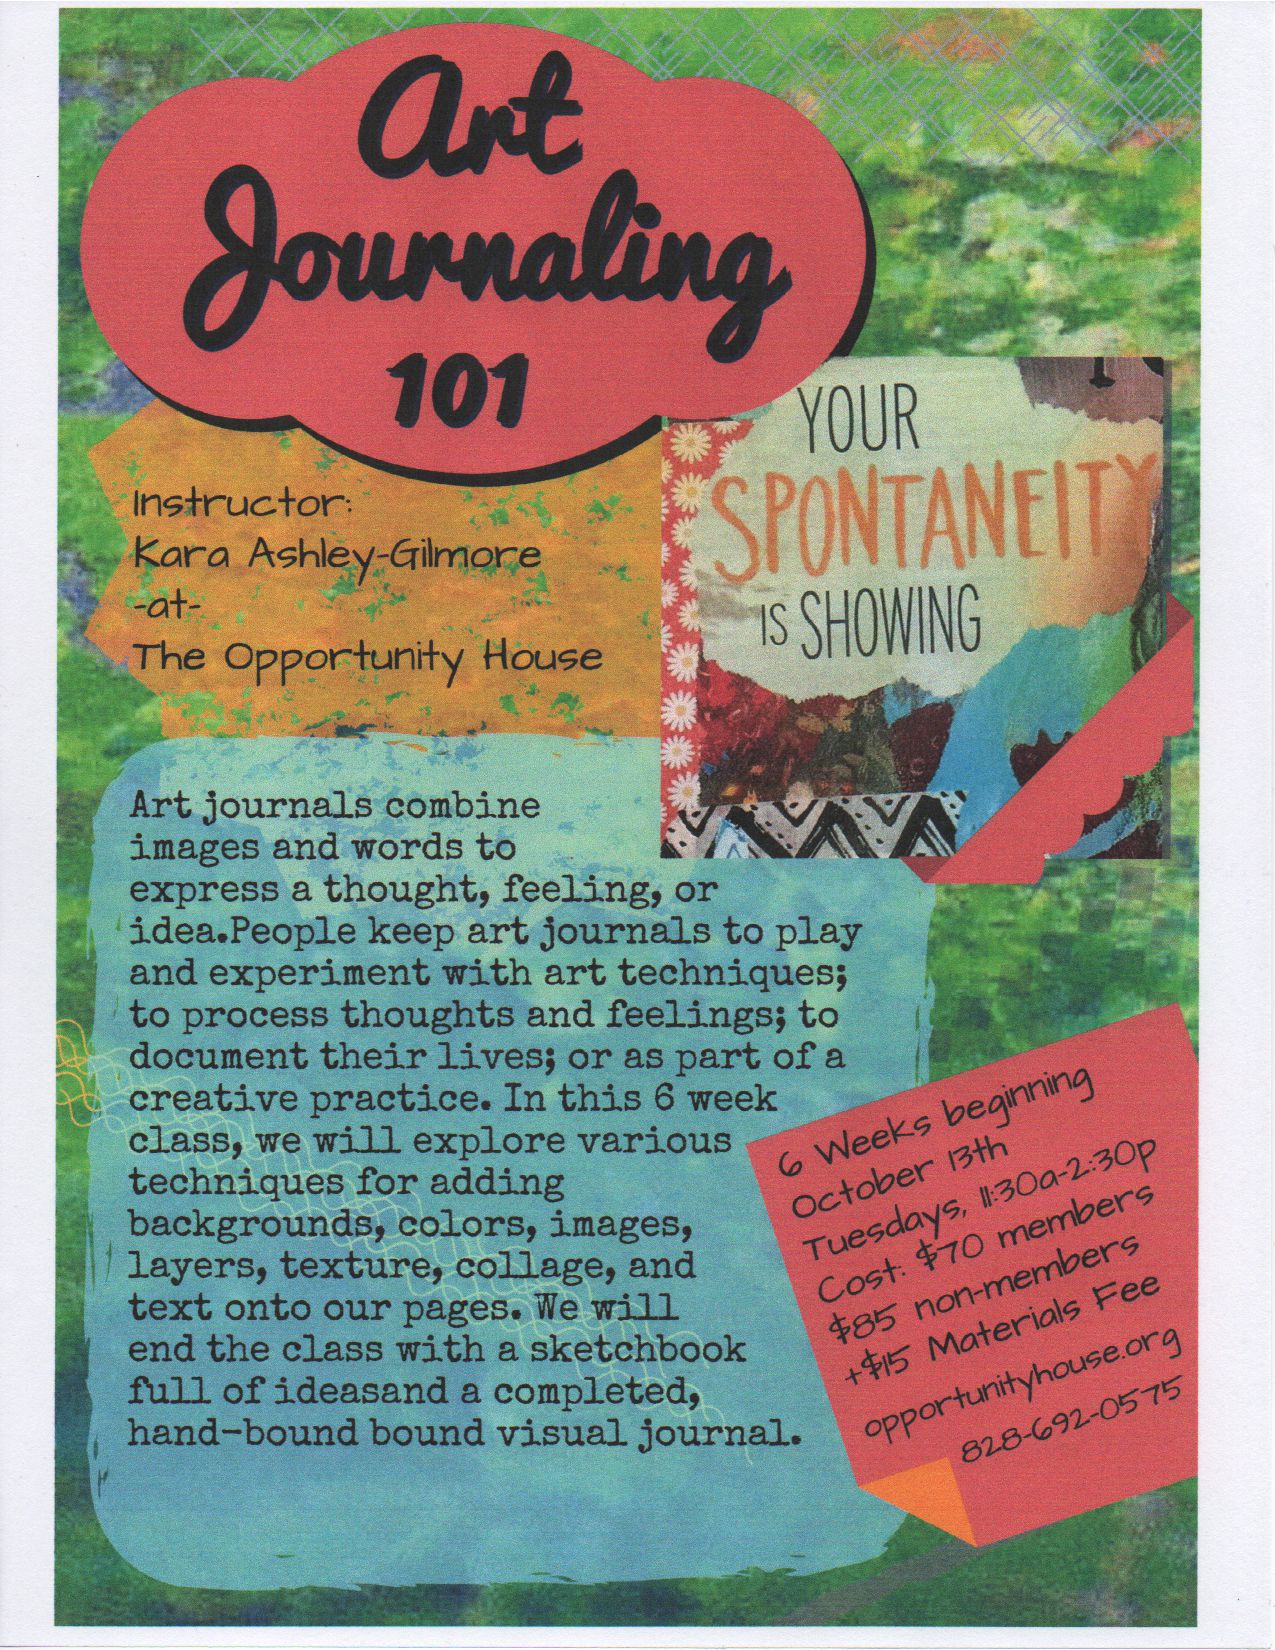 Art
Journaling
101
Instructor:
Kara Ashley-Gilmore
-at-
The Opportunity House
YOUR
SPONTANEITY
IS SHOWING
Art journals combine
images and words to
express a thought, feeling, or
idea.People keep art journals to play
and experiment with art techniques;
to process thoughts and feelings; to
document their lives; or as part of a
creative practice. In this 6 week
class, we will explore various
techniques for adding
backgrounds, colors, images,
layers, texture, collage, and
text onto our pages. We will
end the class with a sketchbook
full of ideasand a completed,
hand-bound bound visual journal.
6 Weeks beginning
October 13th
Tuesdays, 11:30a-2:30p
Cost: $70 members
$85 non-members
+$15 Materials Fee
opportunityhouse.org
828-692-0575